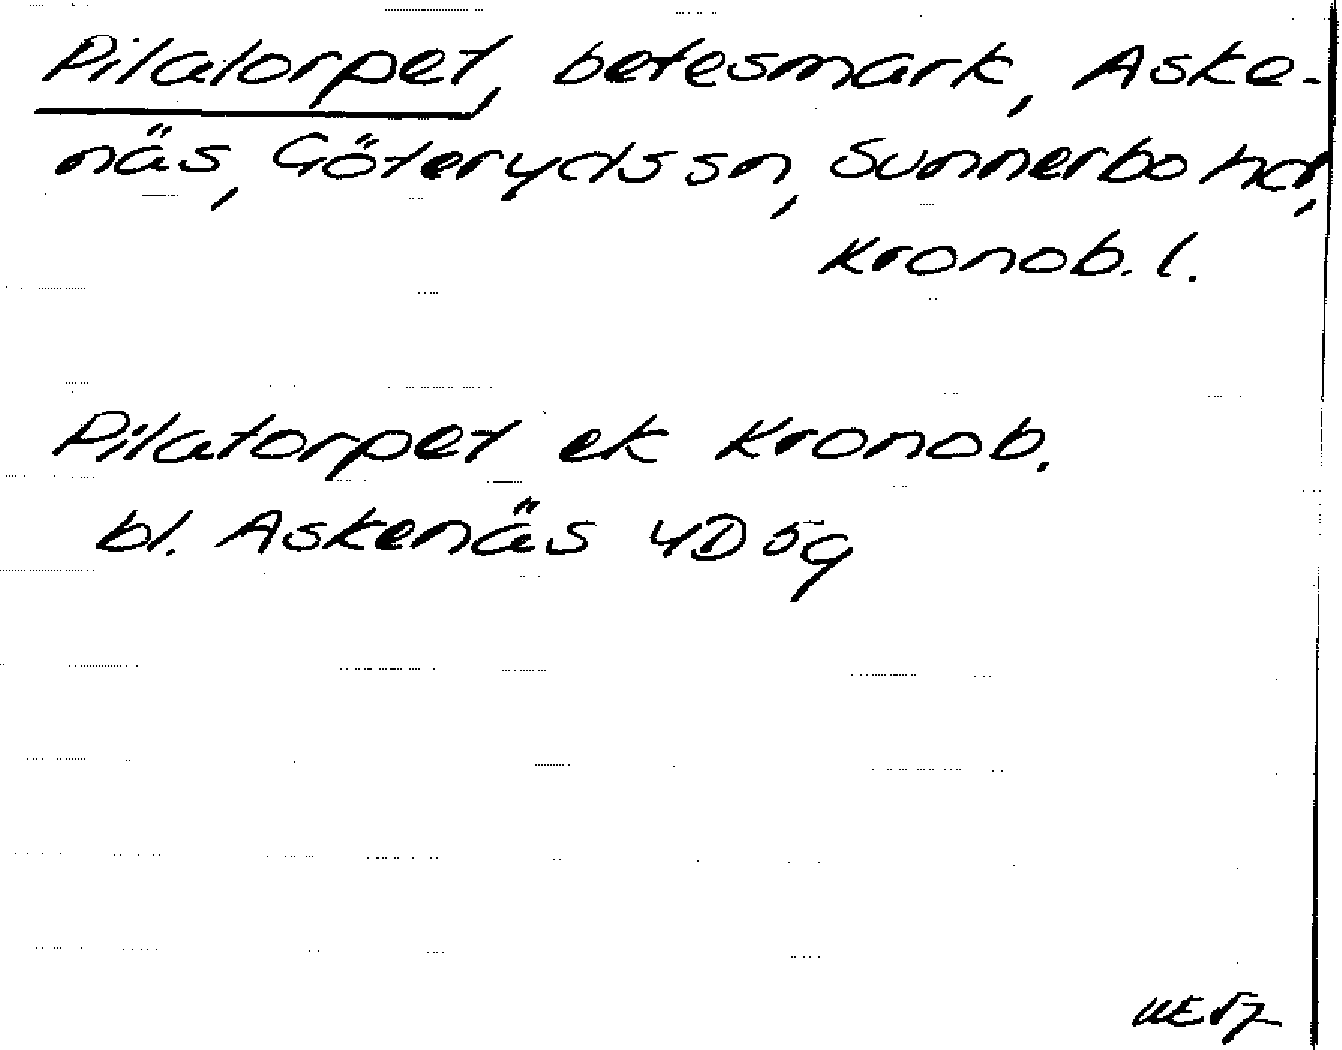 Pilatorpet, betesmark, Aske-
näs, Göteryds sn, Sunnerbo hd,
Kronob. l.
Pilatorpet ek Kronob.
bl. Askenäs 4D 5g